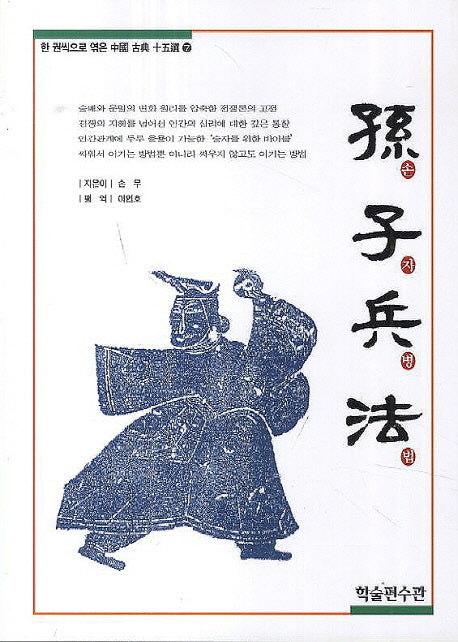 한 권씩으로 엮은 中國 古典 十五選 ⑦
승패와 운명의 변화 원리를 압축한 전쟁론의 고전
전쟁의 지혜를 넘어선 인간의 심리에 대한 깊은 통찰
인간관계에 두루 응용이 가능한 '승자를 위한 바이블'
싸워서 이기는 방법뿐 아니라 싸우지 않고도 이기는 방법
| 지은이 | 손 무
| 평 역 | 이언호
孫 손
子 자
兵 병
法 법
학술편수관